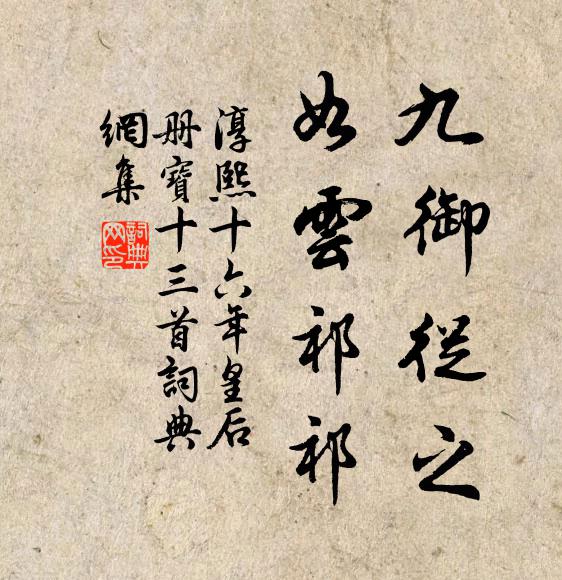 九御從之
如雲祁祁
淳熙十六年皇后
冊寶十三首詞典
網集
詞典
网印